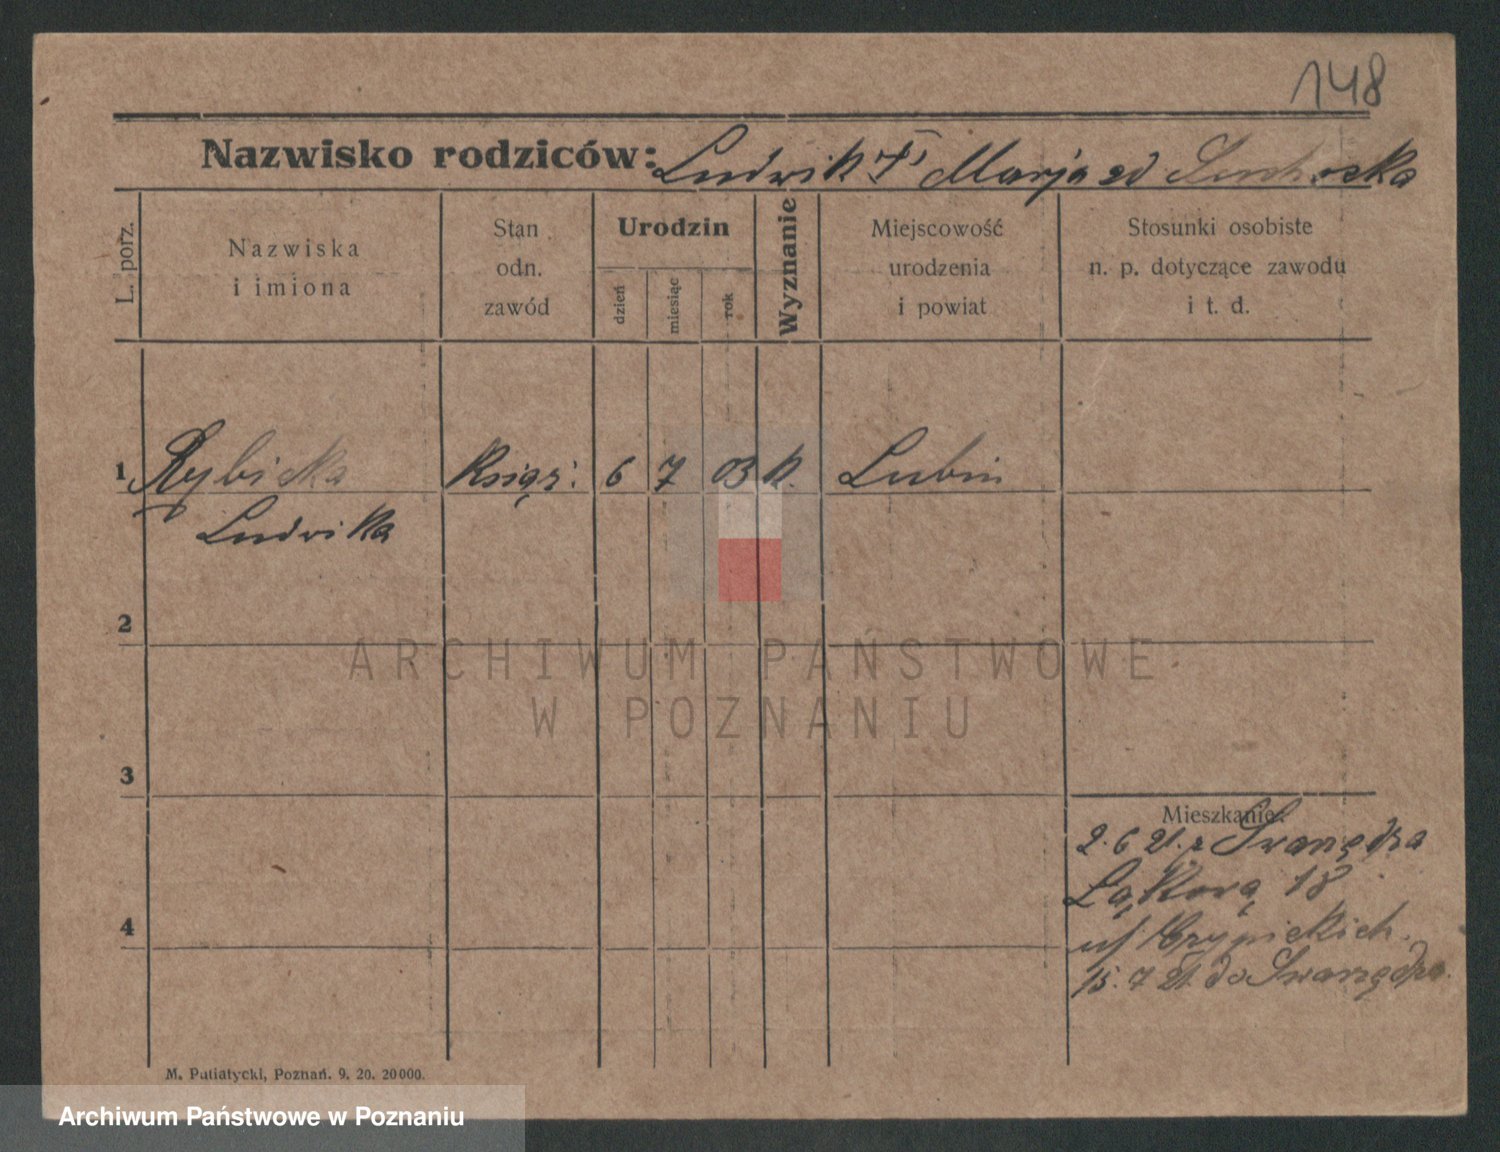 148
Nazwisko rodziców: Ludwik † Marja zd
L. porz.
Nazwiska
i imiona
Stan
odn.
zawód
Urodzin
dzień
miesiąc
rok
Wyznanie
Miejscowość
urodzenia
i powiat
Stosunki osobiste
n. p. dotyczące zawodu
i t. d.
1 Rybicka Książ: 6 7 03 k. Lubin
Ludwika
2
ARCHIWUM PAŃSTWOWE
W POZNANIU
3
Mieszkanie:
2. 6 21. z Swarzędza
Łąkową 18
u/
4
15. 7 21. do Swarzędza.
M. Putiatycki, Poznań. 9. 20. 20000.
Archiwum Państwowe w Poznaniu